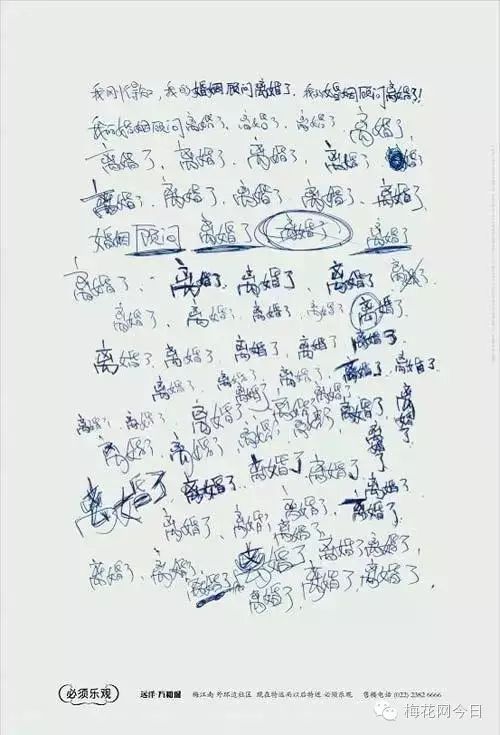 我的婚姻顾问离婚了, 我的婚姻顾问离婚了!
我的婚姻顾问离婚了, 离婚了, 离婚了, 离婚了,
离婚了, 离婚了, 离婚了, 离婚了,
离婚了, 离婚了, 离婚了, 离婚了, 离婚了,
婚姻顾问 离婚了 离婚了 离婚了
离婚了, 离婚了, 离婚了, 离婚了
离婚了, 离婚了, 离婚了, 离婚了 离婚了
离婚了, 离婚了, 离婚了, 离婚了, 离婚了
离婚了, 离婚了, 离婚了, 离婚了, 离婚了
离婚了, 离婚了, 离婚了 离婚了 离婚了 离婚了
离婚了, 离婚了, 离婚了, 离婚了 离婚了
离婚了 离婚了, 离婚了, 离婚了, 离婚了
离婚了, 离婚了, 离婚了, 离婚了
离婚了, 离婚了, 离婚了, 离婚了, 离婚了
离婚了, 离婚了, 离婚了, 离婚了,
必须乐观 远洋·万和城 梅江南 外环边社区 现在特远而以后特近 必须乐观 售楼电话 (022) 2382 6666
梅花网今日